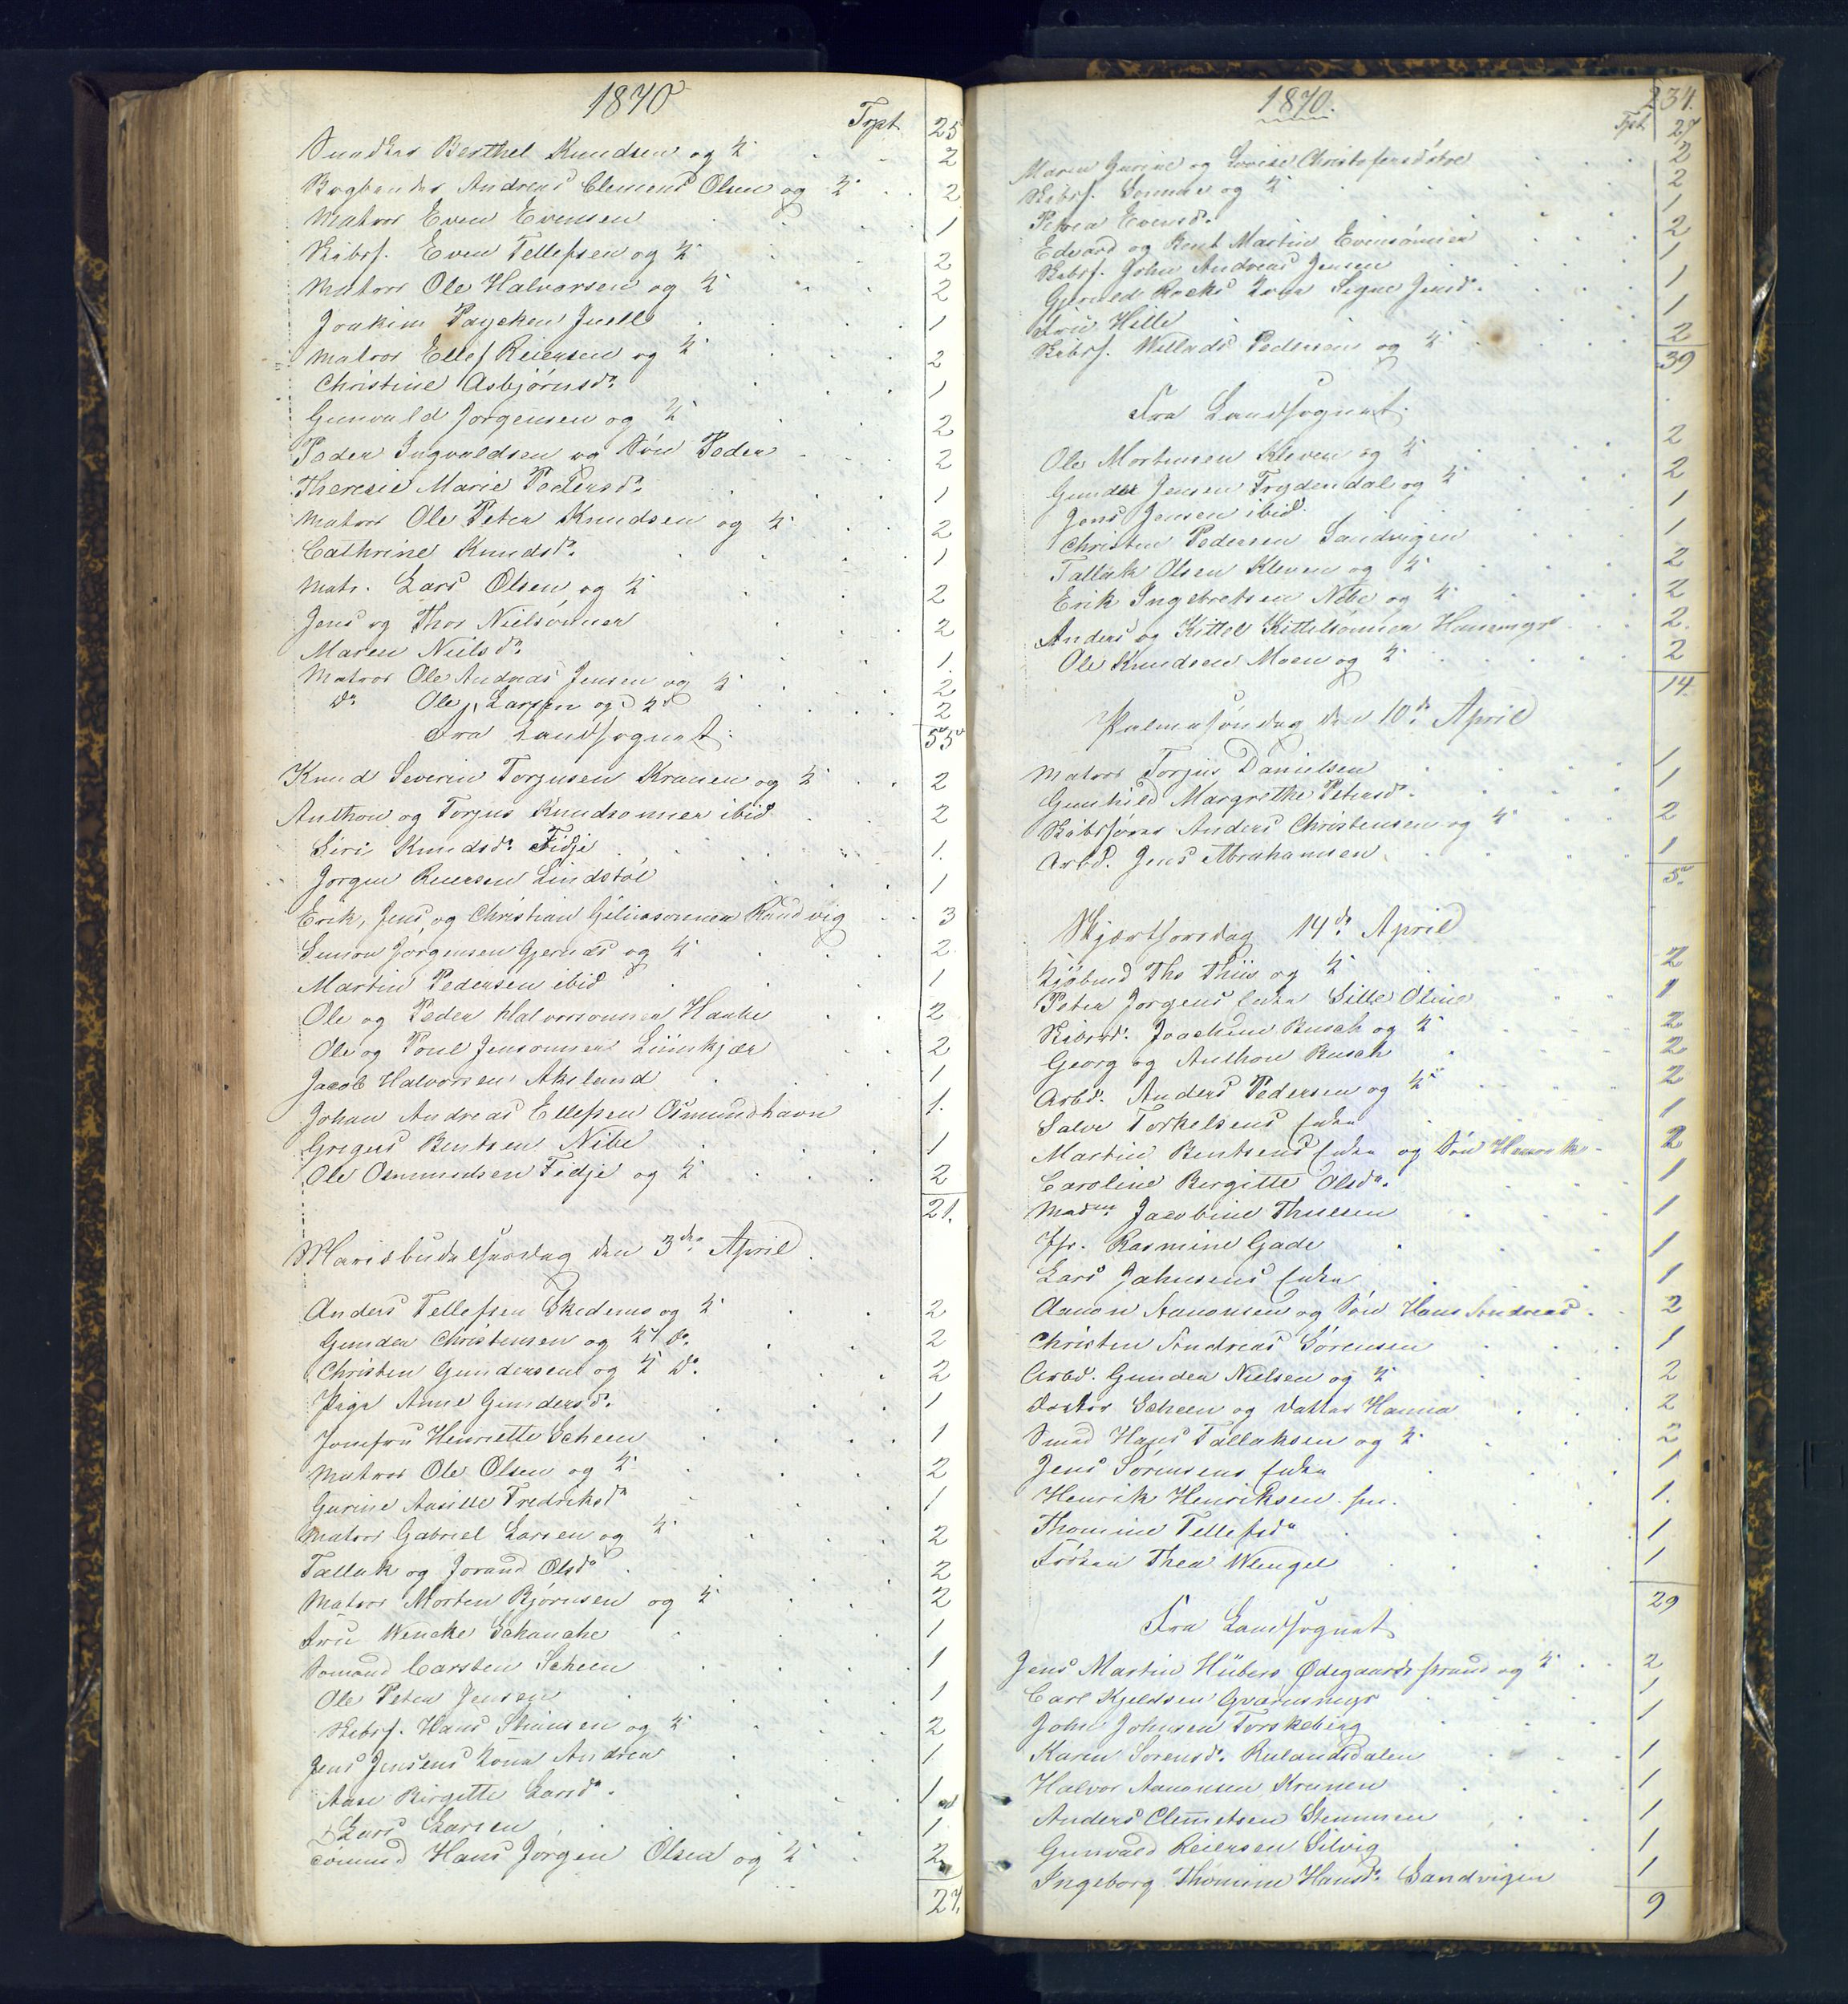 1870
Trpt. 25
Snedker Berthel Knudsen og H. 2
Bogbinder Andreas Clemens Olsen og H. 2
Matros Even Evensen 1
Skibsf. Even Tellefsen og H. 2
Matros Ole Halvorsen og H. 2
Joakim Paycken Juell 1
Matros Ellef Reiersen og H. 2
Christine Asbjørnsd. 1
Gunvald Jørgensen og H. 2
Peder Ingvaldsen og Søn Peder 2
Theresie Marie Pedersd. 1
Matros Ole Peter Knudsen og H. 2
Cathrine Knudsd. 1
Matr. Lars Olsen og H. 2
Jens og Thor Nielsønner 2
Maren Nielsd. 1.
Matros Ole Andreas Jensen og H. 2
Do Ole Larsen og H. 2
Fra Landsognet: 55
Knud Severin Torjusen Kranen og H. 2
Anthon og Torjus Knudsønner ibid 2
Siri Knudsd. Fidje 1.
Jørgen Reiersen Lindstøl 1
Erik, Jens, og Christian Gelius­sønner Randvig 3
Simon Jørgensen Gjernes og H. 2.
Martin Pedersen ibid 1
Ole og Peder Halvorsønner Haabe 2
Ole og Poul Jensønner Liimkjær 2
Jacob Halvorsen Akeland 1
Johan Andreas Ellefsen Osmundhavn 1.
Gregers Bentsen Nibe 1
Ole Osmundsen Fidje og H. 2
21.
Mariæbudskabsdag den 3die April
Anders Tellefsen Skedemo og H. 2
Gunder Christensen og H. Do. 2
Christen Gundersen og H. Do. 2
Pige Anne Gundersd. 1
Jomfru Henriette Scheen 1
Matros Ole Olsen og H. 2
Gurine Aasille Fredriksd. 1
Matros Gabriel Larsen og H. 2
Tallak og Jorand Olsd. 2
Matros Morten Bjørnsen og H. 2
Fru Wencke Schanche 1
Sømand Carsten Scheen 1
Ole Peter Jensen 1
Skibsf. Hans Stiansen og H. 2
Jens Jensens Kone Andrea 1
Aase Birgitte Larsd. 1
Lars Larsen 1
Sømand Hans Jørgen Olsen og H. 2
27.
1870.
234.
Tpt. 27
Maren Gurine og Lovise Christofersdøtre 2
Skibsf. Sonne og H. 2
Petrea Evensd. 1
Edvard og Bent Martin Evensønner 2
Skibsf. John Andreas Jensen 1
Gjeruld Rocks Kone Signe Jensd. 1
Fru Hille 1
Skibsf. Willads Pedersen og H. 2
39
Fra Landsognet.
Ole Mortensen Kleven og H. 2
Gunder Jensen Frydendal og H. 2
Jens Jensen ibid. 1
Christen Pedersen Sandvigen 1
Tallak Olsen Kleven og H. 2
Erik Ingebretsen Nibe og H. 2
Anders og Kittel Kittelsønner Hammeyr 2.
Ole Knudsen Moen og H. 2
14.
Palmesøndag den 10de April
Matros Torjus Danielsen 1
Gunhild Margrethe Petersd. 1
Skibsfører Anders Christensen og H. 2
Arbd. Jens Abrahamsen 1
5.
Skjærthorsdag 14de April
Kjøbmd Ths Thiis og H. 2
Peter Jørgens Enke Sille Oline 1
Skibsrd. Joachim Busch og H. 2
Georg og Anthon Busch 2
Arbd. Anders Pedersen og H. 2
Salve Torkelsens Enke 1
Martin Bentsens Enke og Søn Henrik 2
Caroline Birgitte Olsdr. 1
Madme Jacobine Thuesen 1
Jfr. Rasmine Gade 1
Lars Jahnsens Enke 1
Aanon Aanonsen og Søn Hans Andreas 2
Christen Andreas Sørensen 1
Arbd. Gunder Nielsen og H. 2
Doktor Scheen og Datter Hanna 2
Smed Hans Tallaksen og H. 2
Jens Sørensens Enke 1
Henrik Henriksen sen. 1.
Thomine Tellefsdr 1
Frøken Thea Wengel 1
29
Fra Landsognet
Jens Martin Hübers Ødegaardsstrand og H. 2
Carl Kjeldsen Gvarnsmyr 1
John Johnsen Torskeberg 1
Karen Sorensd. Rulandsdalen 1
Halvor Aanonsen Kranen 1
Anders Clemetsen Stemmen 1
Gunvald Reiersen Silvig 1
Ingeborg Thomine Hansd. Sandvigen 1
9